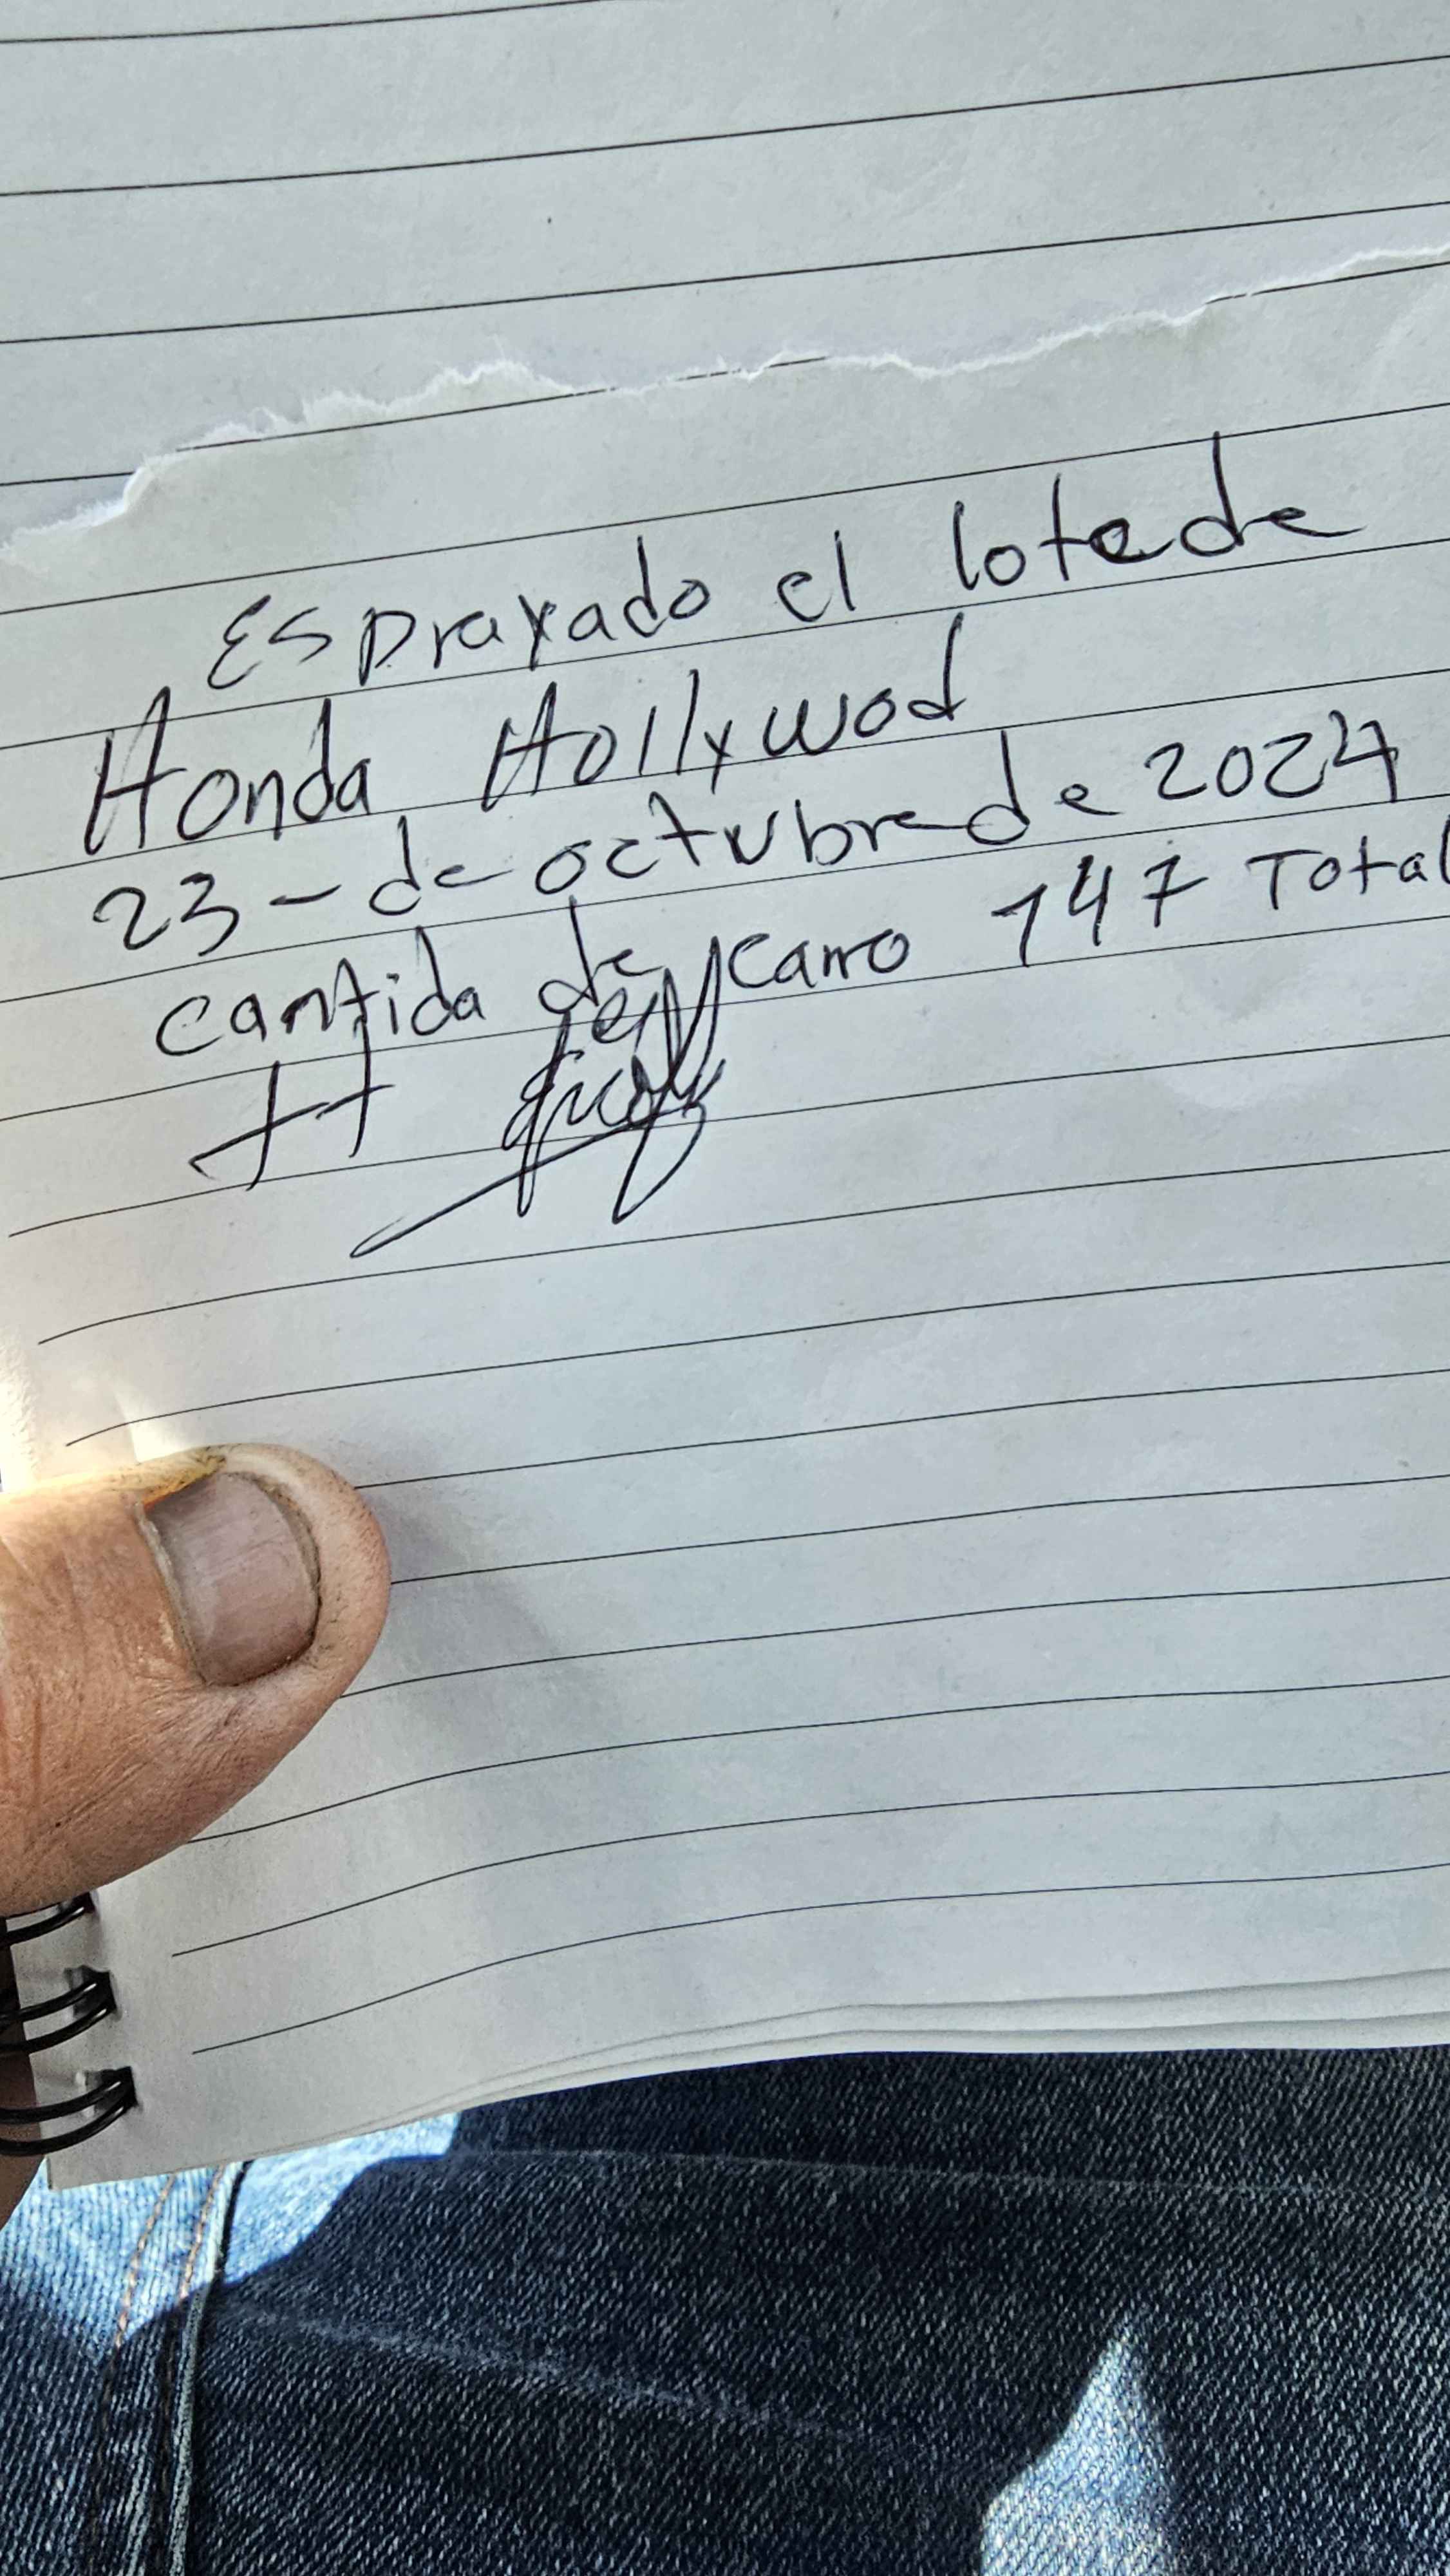 Esprayado el lotede
Honda Hollywod
23 - de octubre de 2024
cantida de carro 147 Total
H